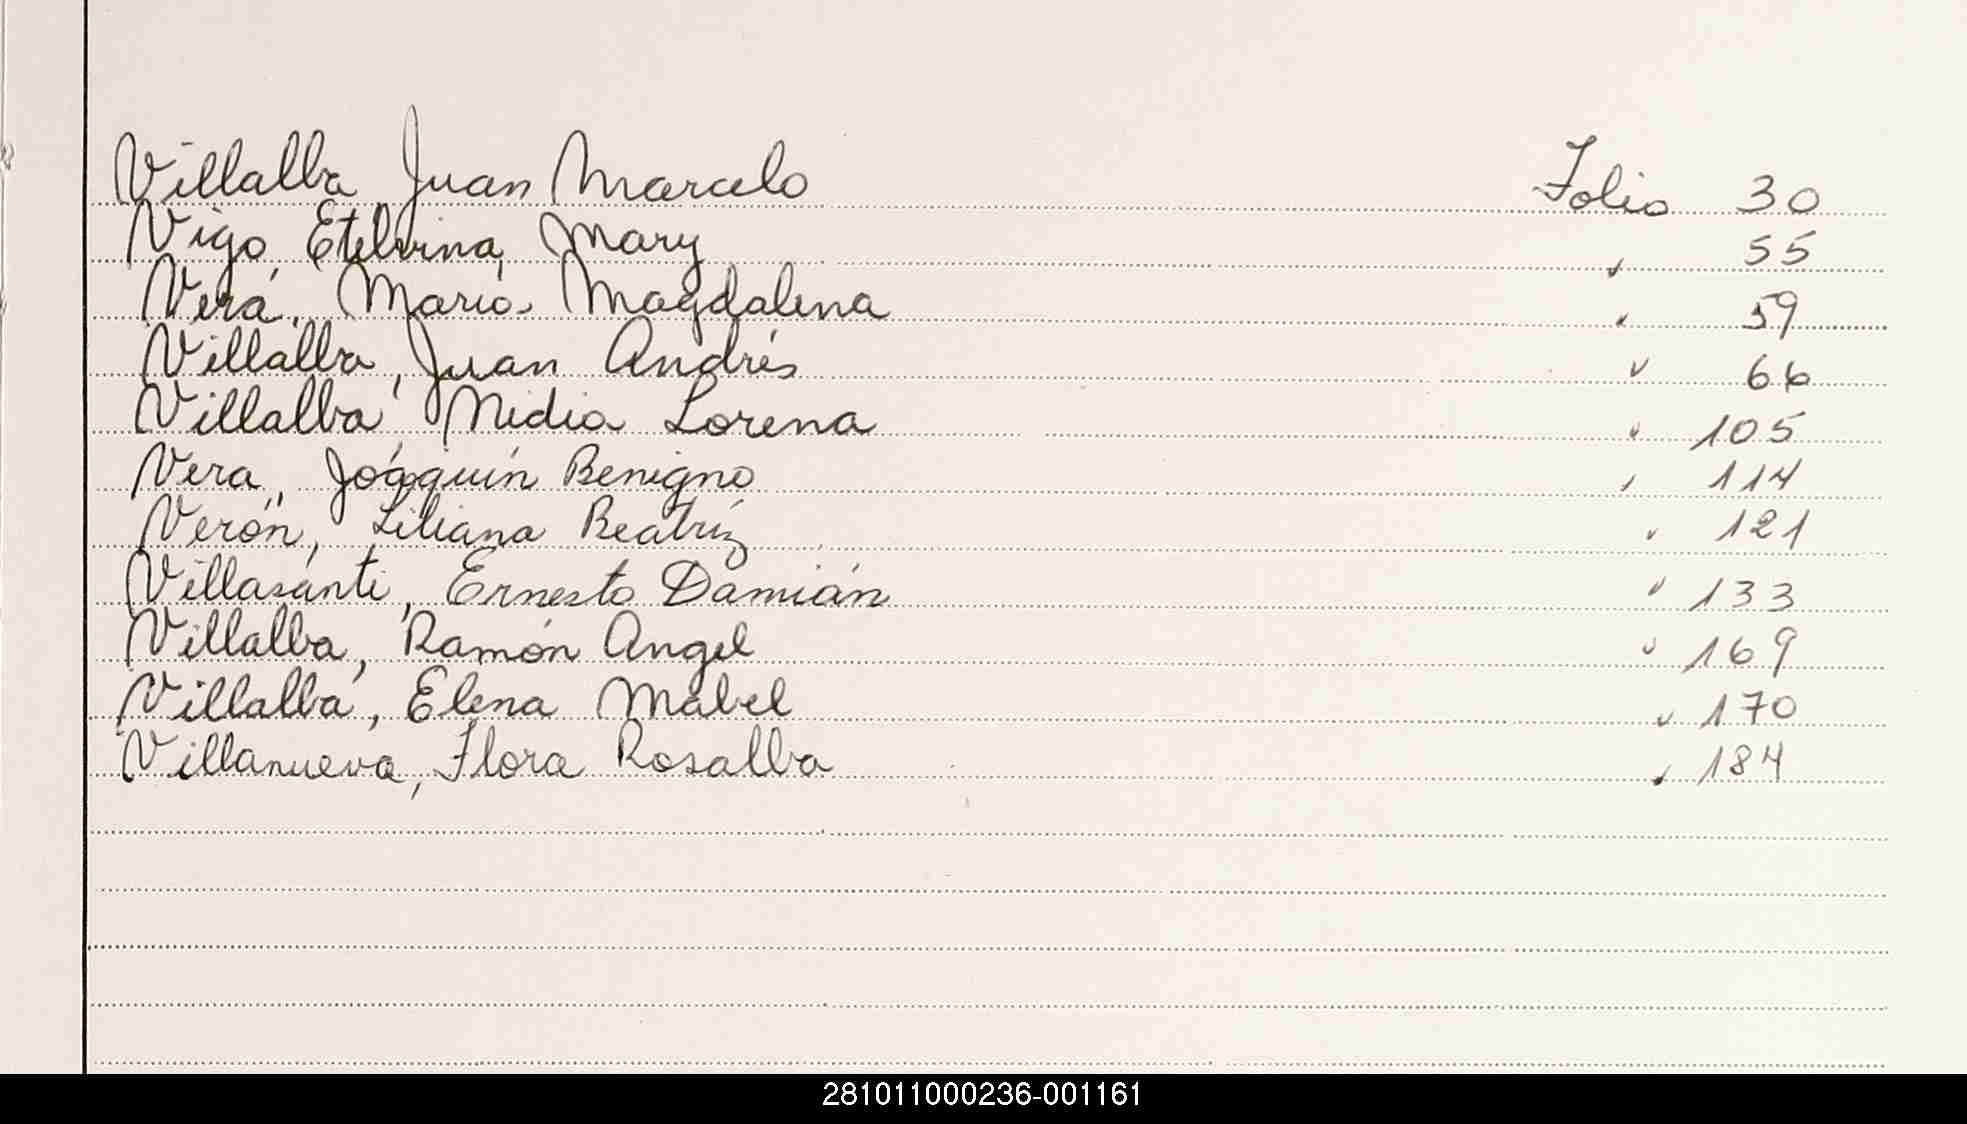 Villalba, Juan Marcelo Folio 30
Vigo, Etelvina, Mary " 55
Vera, Maria Magdalena " 59
Villalba, Juan Andrés " 66
Villalba, Nidia Lorena " 105
Vera, Joaquín Benigno " 114
Verón, Liliana Beatríz " 121
Villasanti, Ernesto Damián " 133
Villalba, Ramón Angel " 169
Villalba, Elena Mabel " 170
Villanueva, Flora Rosalba " 184
281011000236-001161